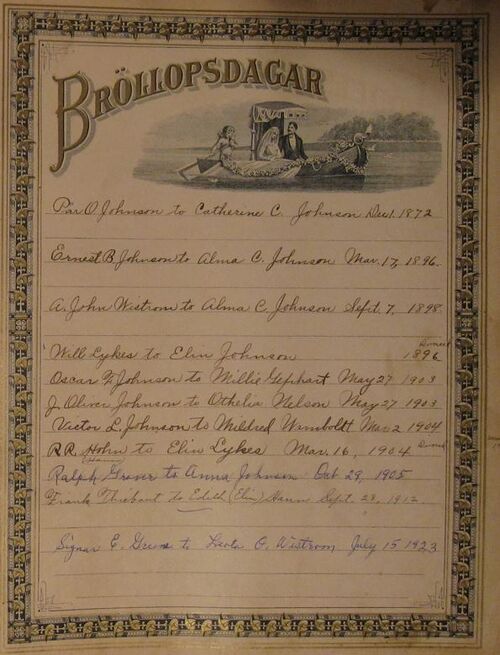 BRÖLLOPSDAGAR
Pär O. Johnson to Catherine C. Johnson Dec 1. 1872
Ernest B. Johnson to Alma C. Johnson Mar. 17, 1896.
A. John Wistrom to Alma C. Johnson Sept. 7, 1898.
Will Lykes to Elin Johnson 1896
Oscar F. Johnson to Millie Gephart May 27 1903
J. Oliver Johnson to Othelia Nelson May 27 1903
Victor L. Johnson to Mildred Wimboldt Mar 2 1904
R.R. Hohn to Elin Lykes Mar. 16, 1904
Ralph to Anna Johnson Oct 29, 1905
Frank to Edith (Elin) Hann Sept. 1912
E. to O. Wistrom July 15 1923